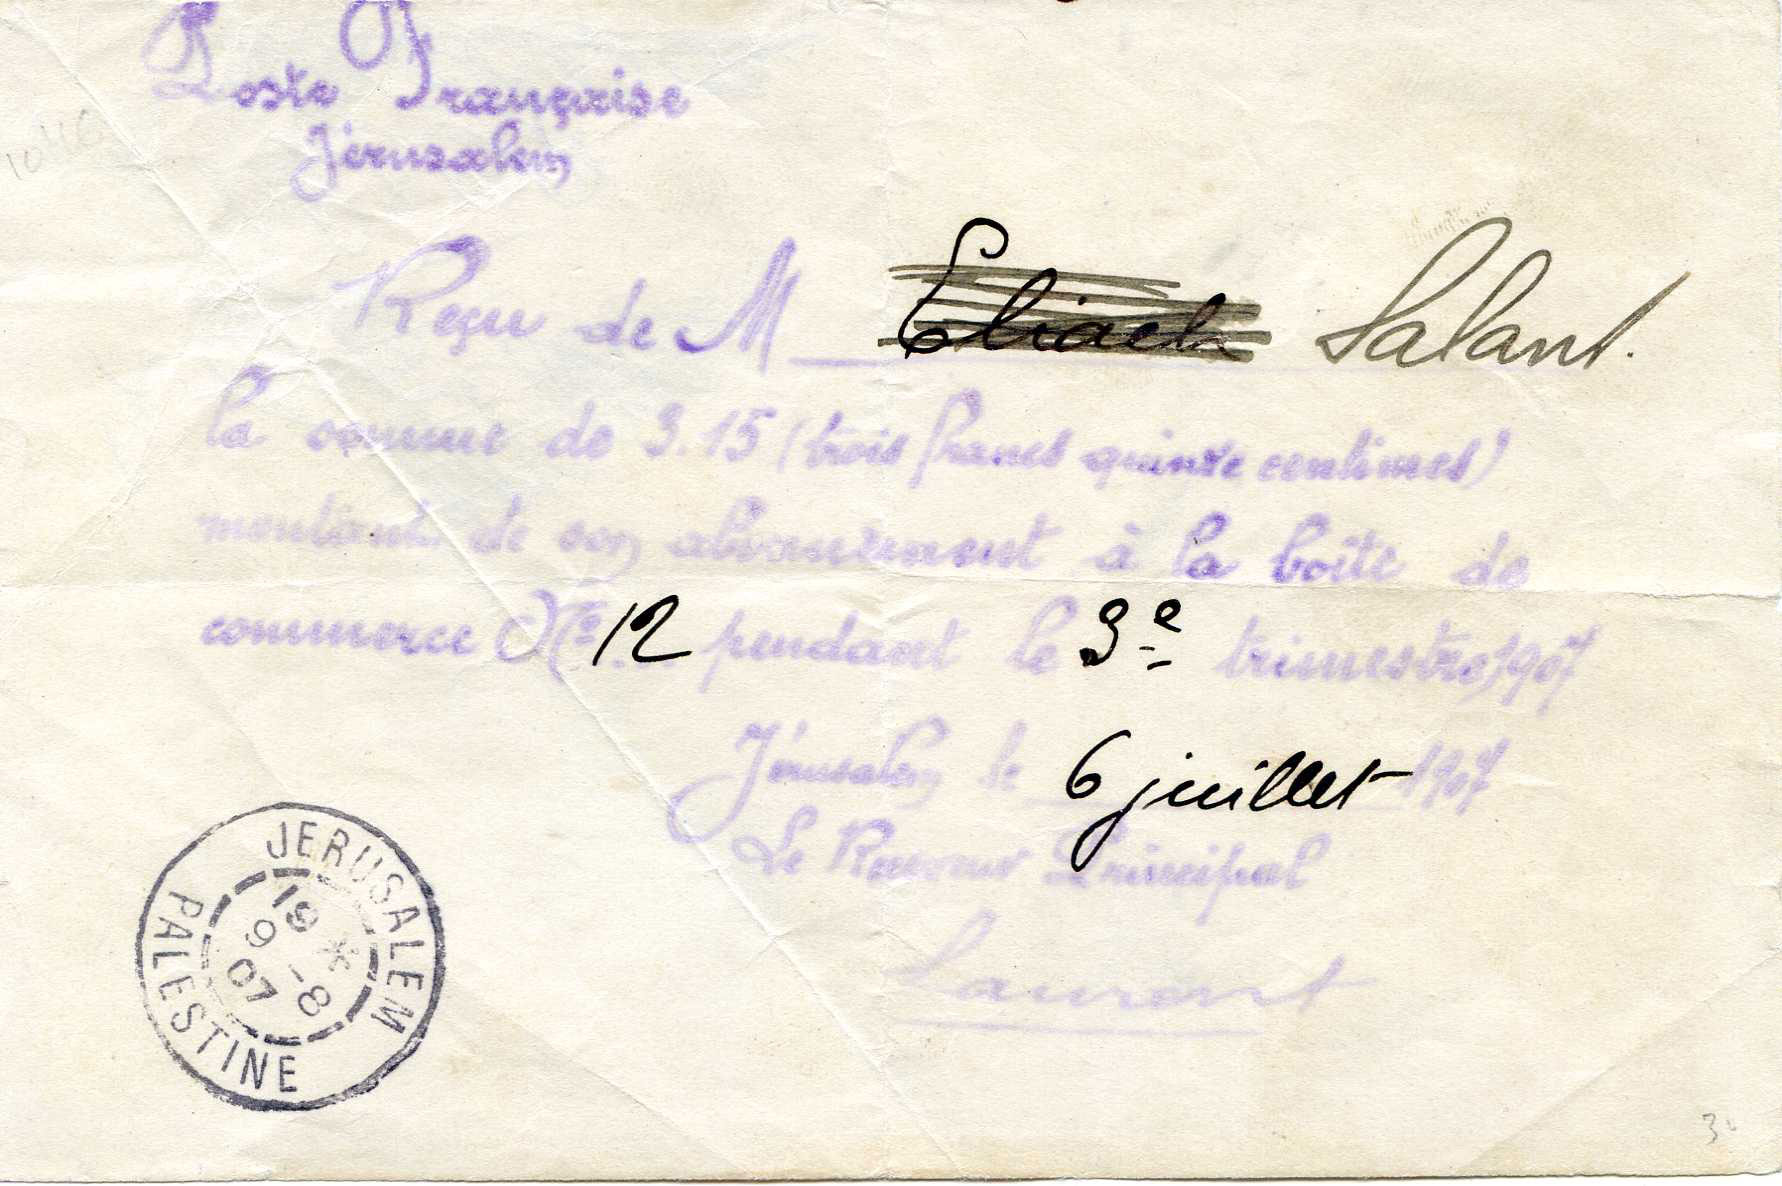 Poste Française
Jérusalem
Reçu de M Eliach Salant.
la somme de 3.15 (trois francs quinze centimes)
montant de son abonnement à la boîte de
commerce No. 12 pendant le 3e trimestre 1907
Jérusalem le 6 juillet 1907
Le Receveur Principal
Laurent
JERUSALEM
19 * 9 -8 07
PALESTINE